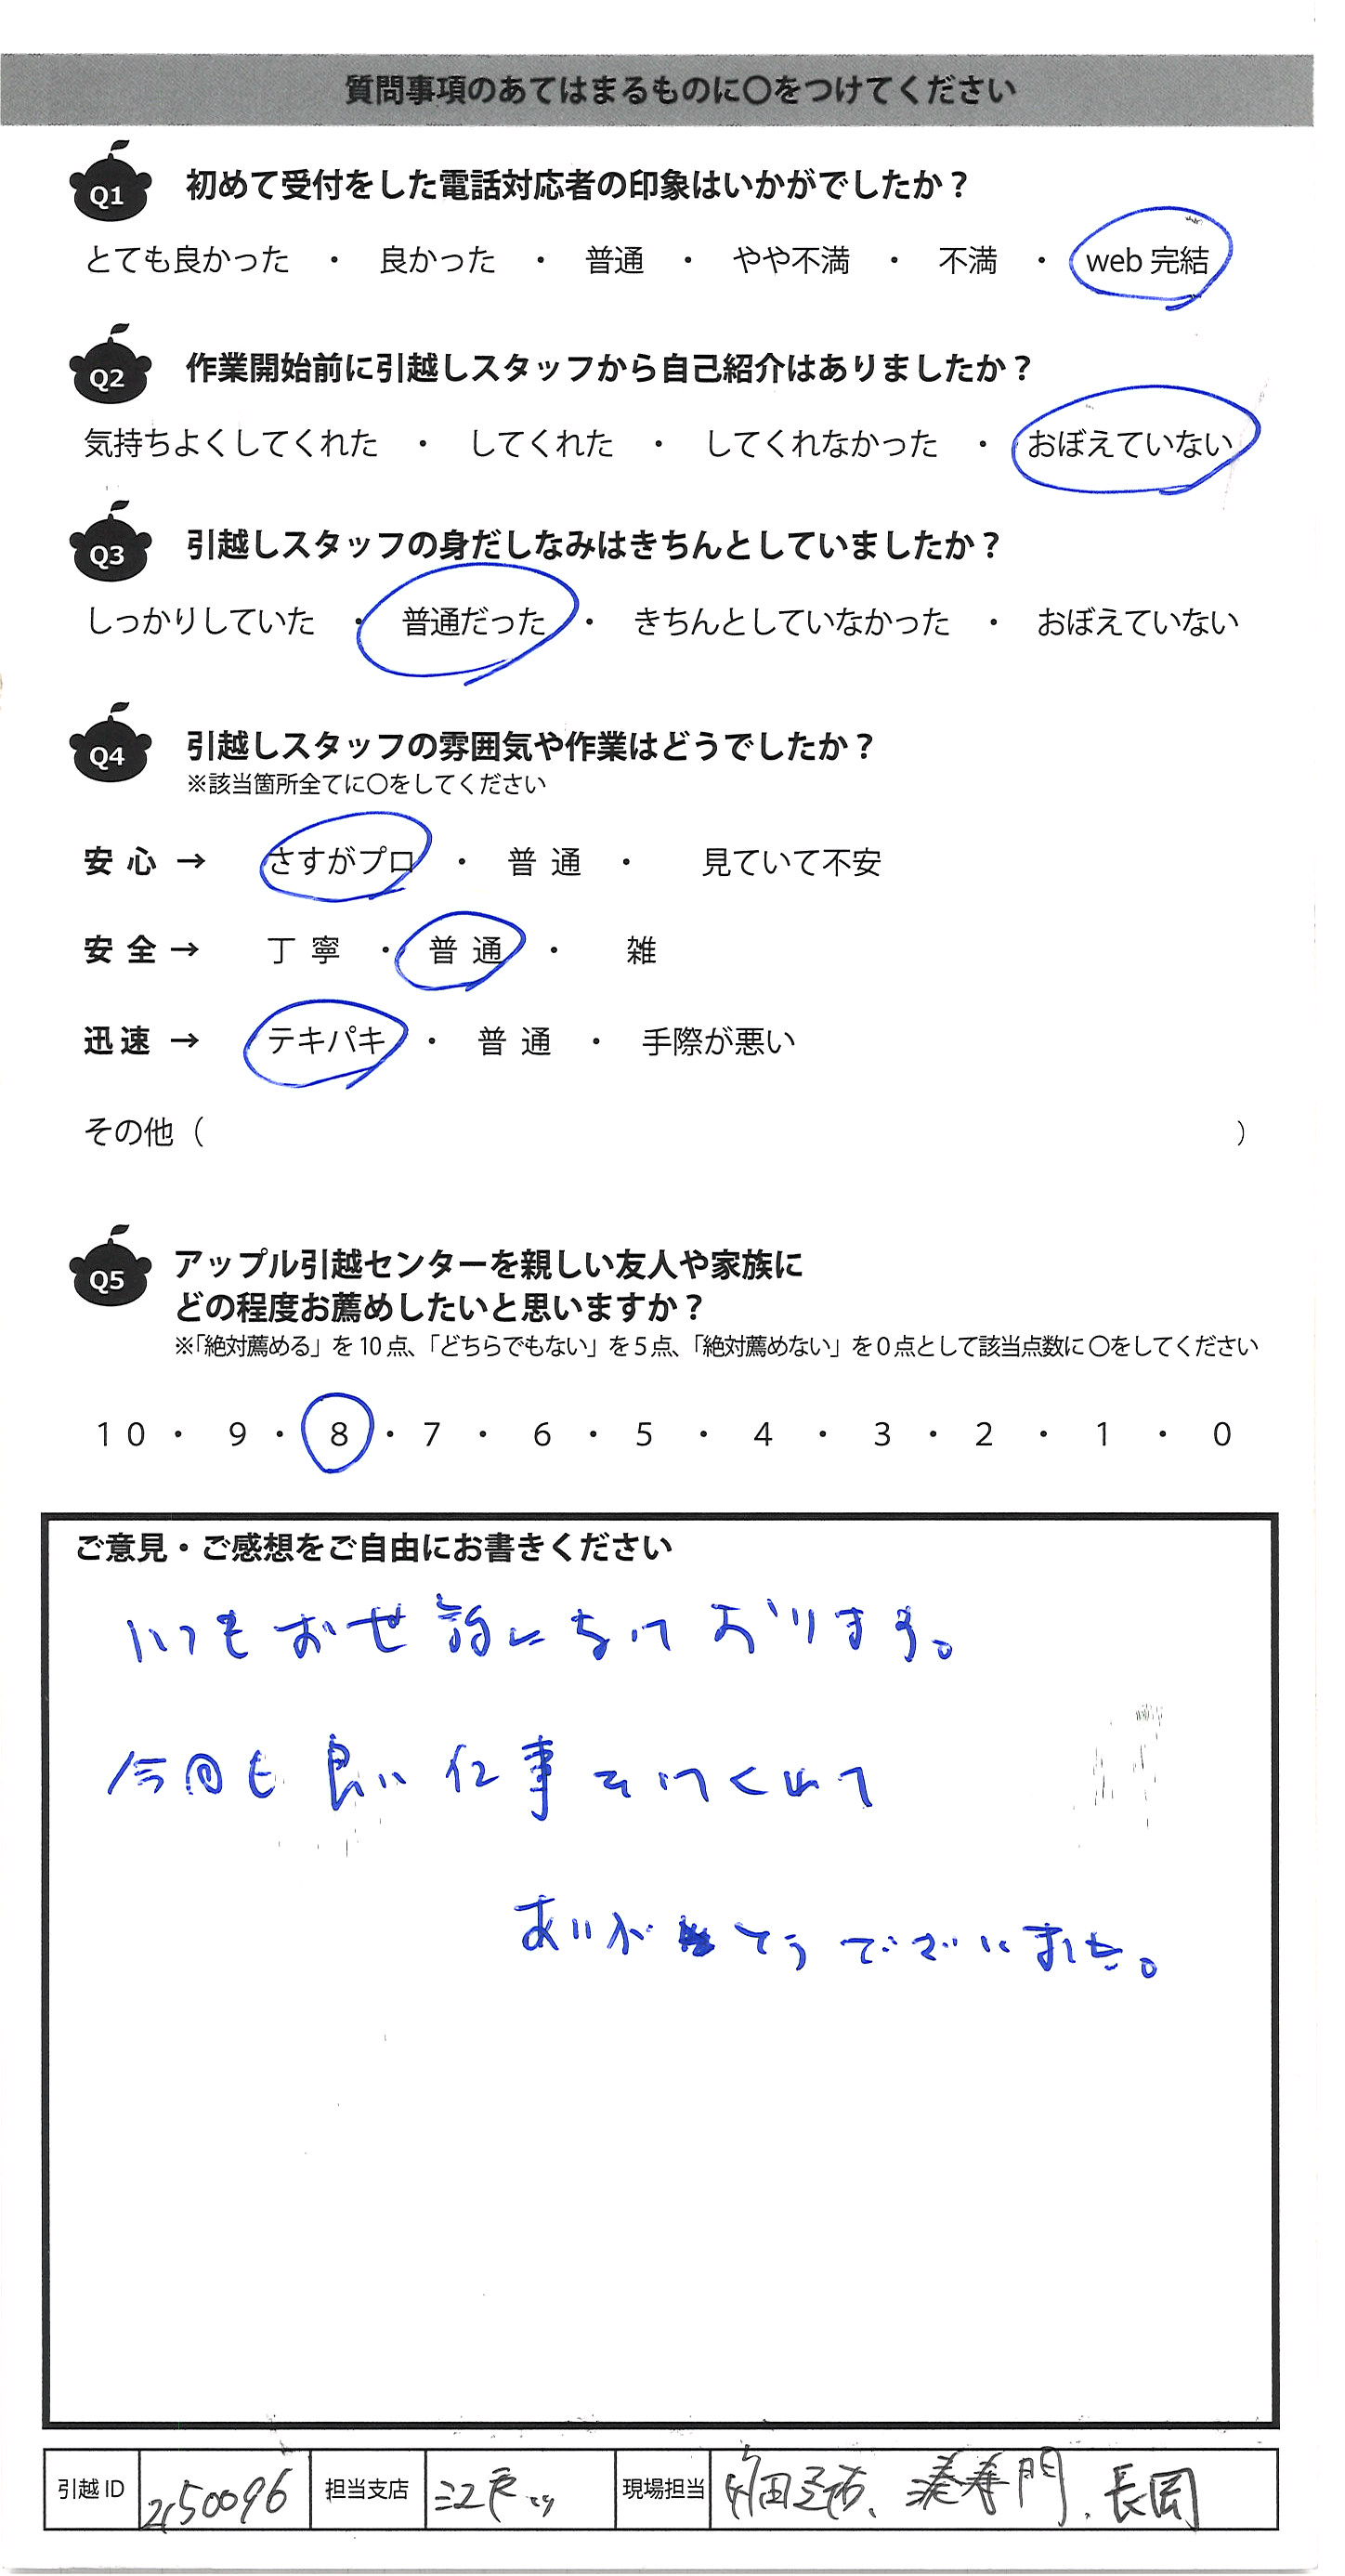 質問事項のあてはまるものに〇をつけてください
Q1 初めて受付をした電話対応者の印象はいかがでしたか？
とても良かった ・ 良かった ・ 普通 ・ やや不満 ・ 不満 ・ web 完結
Q2 作業開始前に引越しスタッフから自己紹介はありましたか？
気持ちよくしてくれた ・ してくれた ・ してくれなかった ・ おぼえていない
Q3 引越しスタッフの身だしなみはきちんとしていましたか？
しっかりしていた ・ 普通だった ・ きちんとしていなかった ・ おぼえていない
Q4 引越しスタッフの雰囲気や作業はどうでしたか？
※該当箇所全てに〇をしてください
安心 → さすがプロ ・ 普通 ・ 見ていて不安
安全 → 丁寧 ・ 普通 ・ 雑
迅速 → テキパキ ・ 普通 ・ 手際が悪い
その他（ ）
Q5 アップル引越センターを親しい友人や家族に
どの程度お薦めしたいと思いますか？
※「絶対薦める」を10点、「どちらでもない」を5点、「絶対薦めない」を0点として該当点数に〇をしてください
10 ・ 9 ・ 8 ・ 7 ・ 6 ・ 5 ・ 4 ・ 3 ・ 2 ・ 1 ・ 0
ご意見・ご感想をご自由にお書きください
いつもお世話になっております。
今回も良い仕事をしてくれて
ありがとうございました。
引越ID 2150096 担当支店 江戸 現場担当 長岡